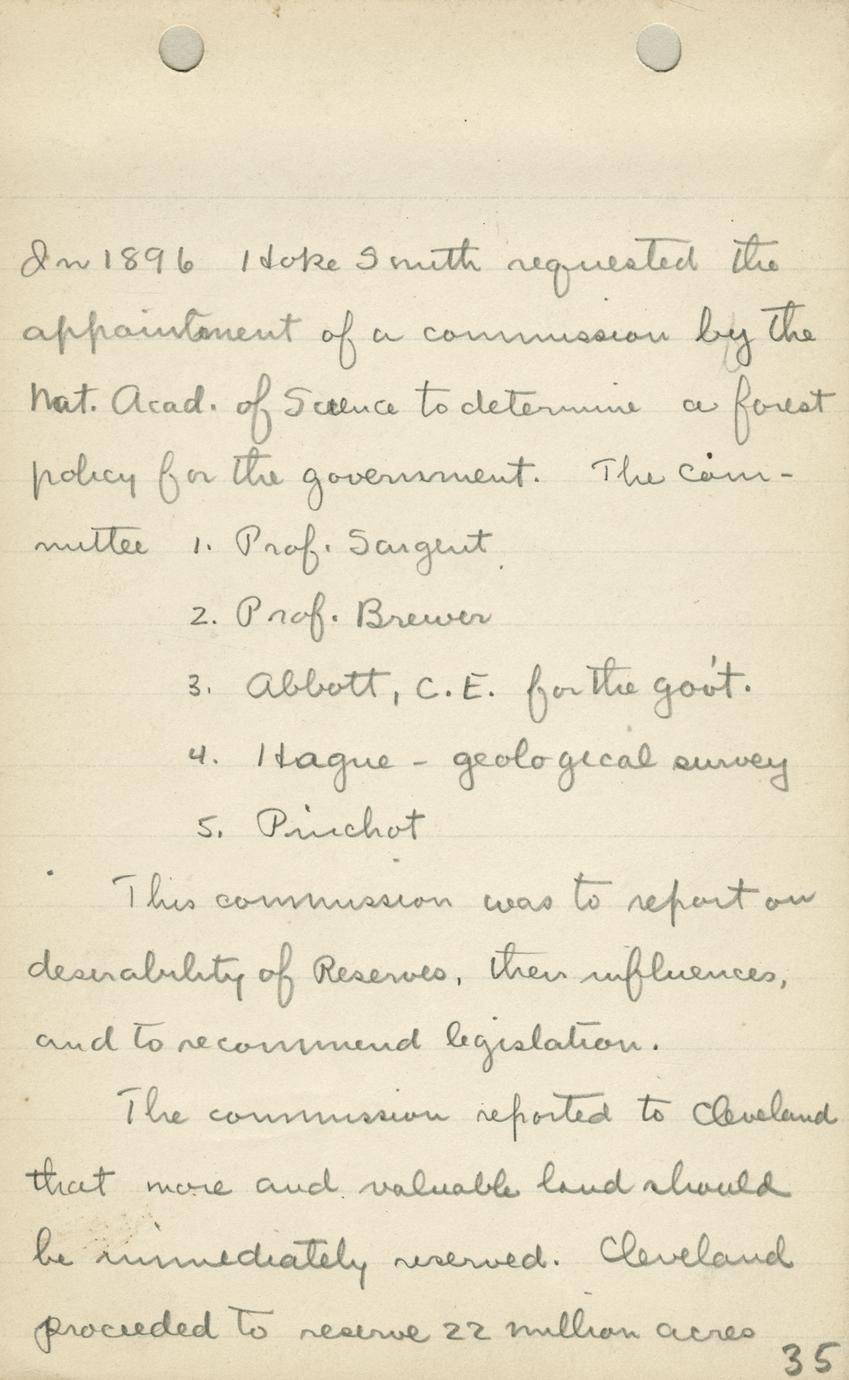 In 1896 Hoke Smith requested the
appointment of a commission by the
Nat. Acad. of Science to determine a forest
policy for the government. The com-
mittee 1. Prof. Sargent
2. Prof. Brewer
3. Abbott, C.E. for the gov't.
4. Hague - geological survey
5. Pinchot
This commission was to report on
desirability of Reserves, their influences,
and to recommend legislation.
The commission reported to Cleveland
that more and valuable land should
be immediately reserved. Cleveland
proceeded to reserve 22 million acres
35